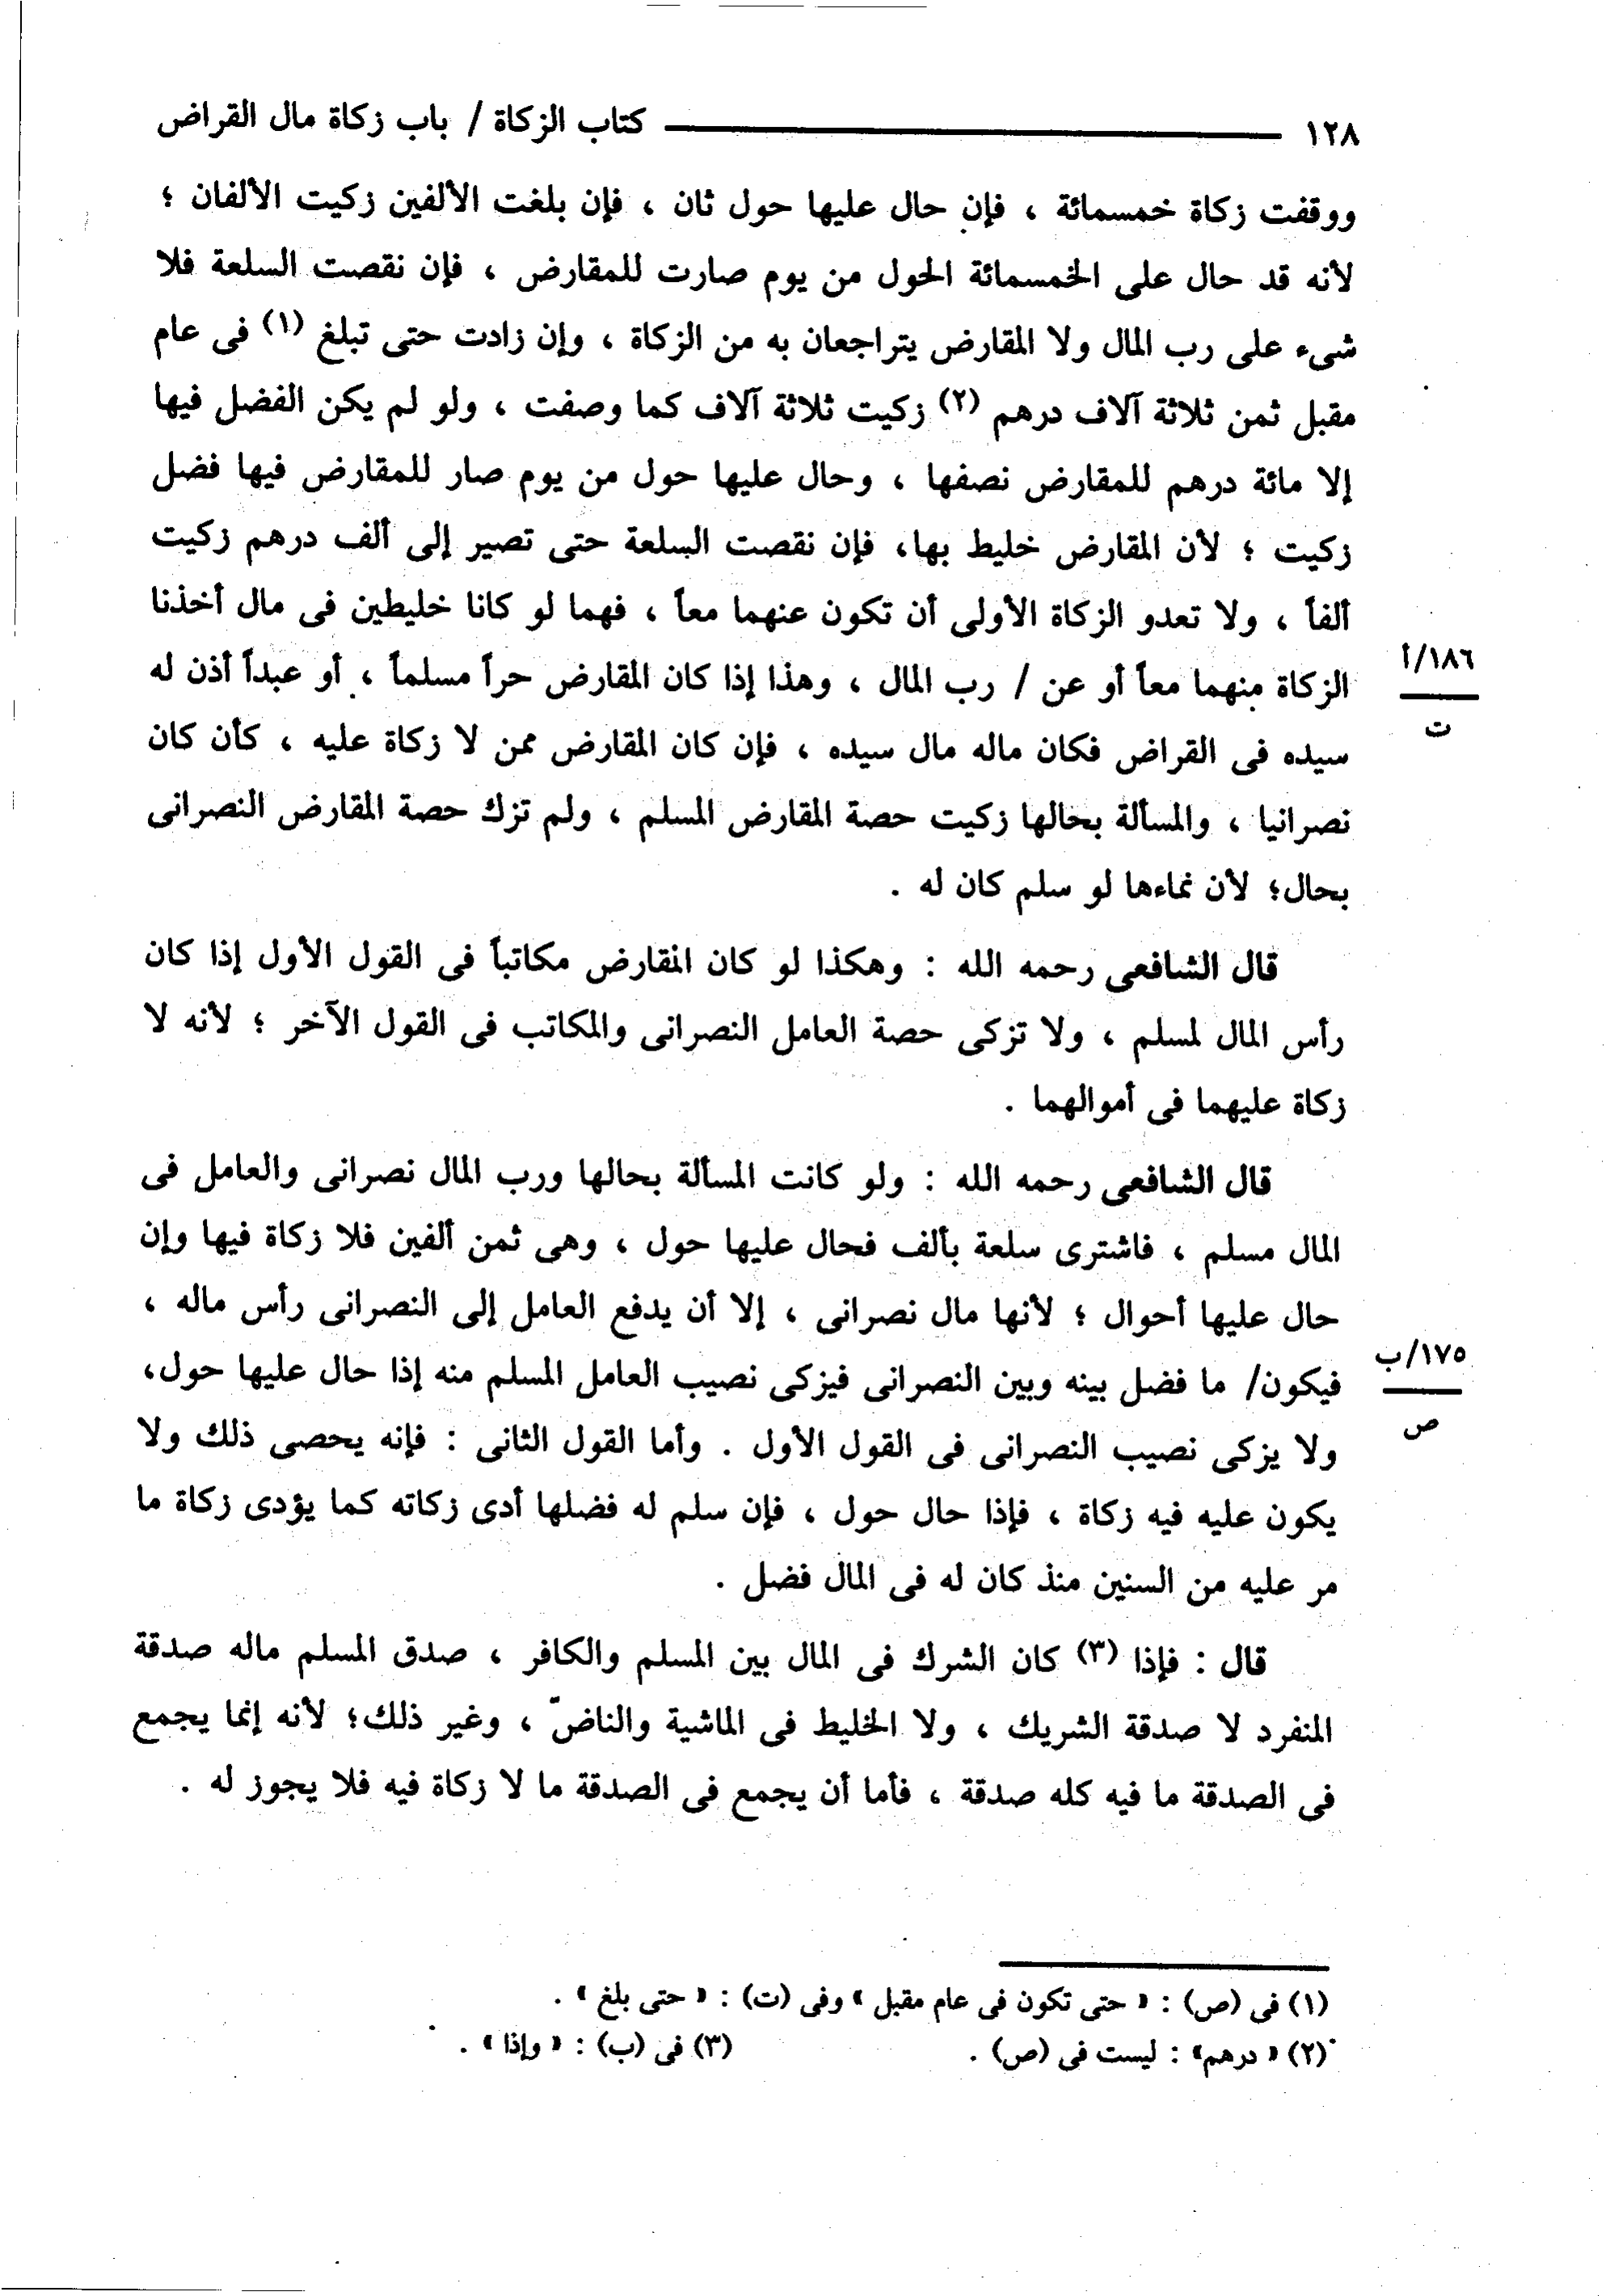 ١٢٨ ـــــــــــــــــ كتاب الزكاة / باب زكاة مال القراض
ووقفت زكاة خمسمائة ، فإن حال عليها حول ثان ، فإن بلغت الألفين زكيت الألفان ؛
لأنه قد حال على الخمسمائة الحول من يوم صارت للمقارض ، فإن نقصت السلعة فلا
شىء على رب المال ولا المقارض يتراجعان به من الزكاة ، وإن زادت حتى تبلغ (١) فى عام
مقبل ثمن ثلاثة آلاف درهم (٢) زكيت ثلاثة آلاف كما وصفت ، ولو لم يكن الفضل فيها
إلا مائة درهم للمقارض نصفها ، وحال عليها حول من يوم صار للمقارض فيها فضل
زكيت ؛ لأن المقارض خليط بها، فإن نقصت السلعة حتى تصير إلى ألف درهم زكيت
ألفاً ، ولا تعدو الزكاة الأولى أن تكون عنهما معاً ، فهما لو كانا خليطين فى مال أخذنا
الزكاة منهما معاً أو عن / رب المال ، وهذا إذا كان المقارض حراً مسلماً ، أو عبداً أذن له
١٨٦/أ
ت
سيده فى القراض فكان ماله مال سيده ، فإن كان المقارض ممن لا زكاة عليه ، كأن كان
نصرانيا ، والمسألة بحالها زكيت حصة المقارض المسلم ، ولم تزك حصة المقارض النصرانى
بحال؛ لأن نماءها لو سلم كان له .
قال الشافعى رحمه الله : وهكذا لو كان المقارض مكاتباً فى القول الأول إذا كان
رأس المال لمسلم ، ولا تزكى حصة العامل النصرانى والمكاتب فى القول الآخر ؛ لأنه لا
زكاة عليهما فى أموالهما .
قال الشافعى رحمه الله : ولو كانت المسألة بحالها ورب المال نصرانى والعامل فى
المال مسلم ، فاشترى سلعة بألف فحال عليها حول ، وهى ثمن ألفين فلا زكاة فيها وإن
حال عليها أحوال ؛ لأنها مال نصرانى ، إلا أن يدفع العامل إلى النصرانى رأس ماله ،
فيكون/ ما فضل بينه وبين النصرانى فيزكى نصيب العامل المسلم منه إذا حال عليها حول،
١٧٥/ب
ص
ولا يزكى نصيب النصرانى فى القول الأول . وأما القول الثانى : فإنه يحصى ذلك ولا
يكون عليه فيه زكاة ، فإذا حال حول ، فإن سلم له فضلها أدى زكاته كما يؤدى زكاة ما
مر عليه من السنين منذ كان له فى المال فضل .
قال : فإذا (٣) كان الشرك فى المال بين المسلم والكافر ، صدق المسلم ماله صدقة
المنفرد لا صدقة الشريك ، ولا الخليط فى الماشية والناضّ ، وغير ذلك؛ لأنه إنما يجمع
فى الصدقة ما فيه كله صدقة ، فأما أن يجمع فى الصدقة ما لا زكاة فيه فلا يجوز له .
(١) فى (ص) : « حتى تكون فى عام مقبل » وفى (ت) : « حتى بلغ » .
(٢) « درهم» : ليست فى (ص) . (٣) فى (ب) : « وإذا » .